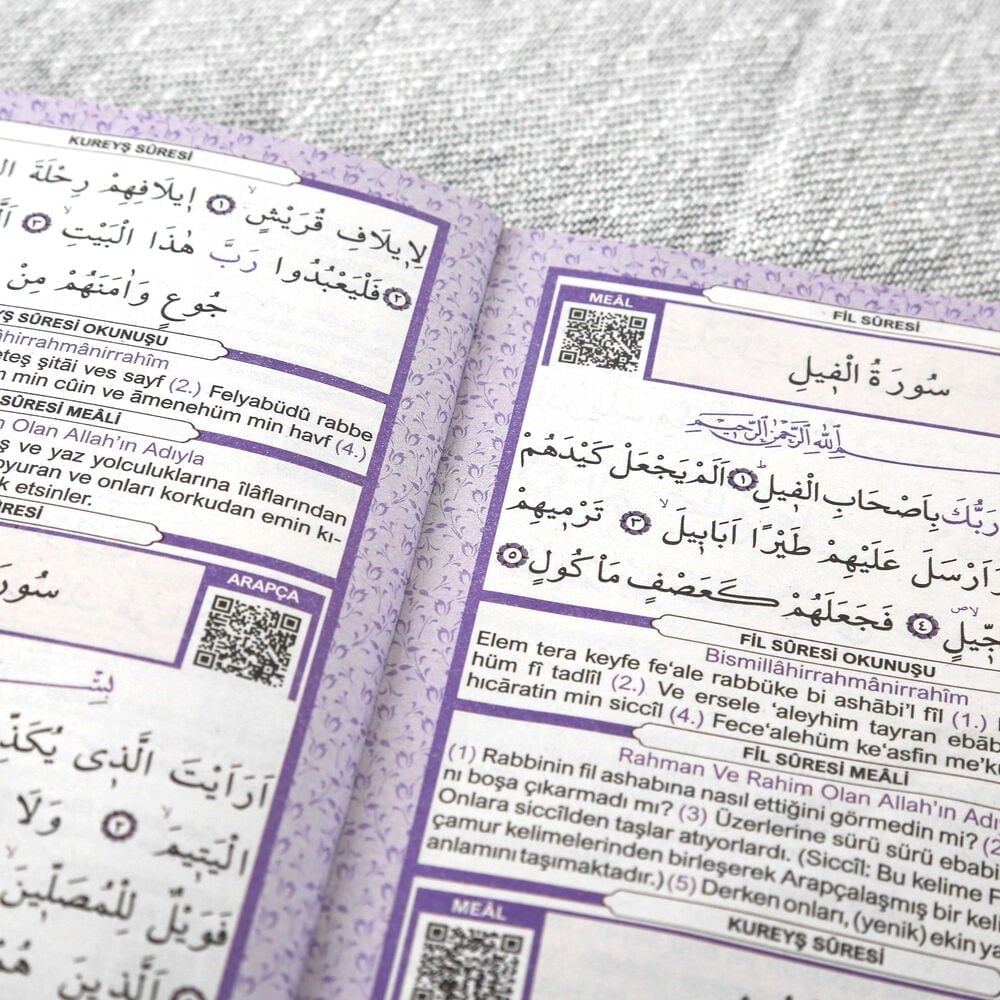 KUREYŞ SÛRESİ
لِإِيلَافِ قُرَيْشٍ ۝١ اِيلَافِهِمْ رِحْلَةَ
۝٢ فَلْيَعْبُدُوا رَبَّ هٰذَا الْبَيْتِ ۝٣
جُوعٍ وَاٰمَنَهُمْ مِنْ
SÛRESİ OKUNUŞU
şitâi ves sayf (2.) Felyabüdû rabbe
min cûin ve âmenehüm min havf (4.)
SÛRESİ MEÂLİ
Olan Allah’ın Adıyla
ve yaz yolculuklarına îlâflarından
ve onları korkudan emin kı-
etsinler.
ARAPÇA
اَرَاَيْتَ الَّذِى
الْيَتِيمَ ۝٢ وَلَا
فَوَيْلٌ لِلْمُصَلِّينَ
اَلَّذِينَ
MEÂL
FİL SÛRESİ
سُورَةُ الْفِيلِ
رَبُّكَ بِاَصْحَابِ الْفِيلِ ۝١ اَلَمْ يَجْعَلْ كَيْدَهُمْ
وَاَرْسَلَ عَلَيْهِمْ طَيْرًا اَبَابِيلَ ۝٣ تَرْمِيهِمْ
۝٤ فَجَعَلَهُمْ كَعَصْفٍ مَاْكُولٍ ۝٥
FİL SÛRESİ OKUNUŞU
Bismillâhirrahmânirrahîm
Elem tera keyfe fe‘ale rabbüke bi ashâbi’l fîl (1.)
hüm fî tadlîl (2.) Ve ersele ‘aleyhim tayran
hıcâratin min siccîl (4.) Fece‘alehüm ke‘asfin
FİL SÛRESİ MEÂLİ
Rahman Ve Rahim Olan Allah’ın
(1) Rabbinin fil ashabına nasıl ettiğini görmedin mi?
nı boşa çıkarmadı mı? (3) Üzerlerine sürü sürü
Onlara siccîlden taşlar atıyorlardı. (Siccîl: Bu kelime
çamur kelimelerinden birleşerek Arapçalaşmış bir
anlamını taşımaktadır.) (5) Derken onları, (yenik) ekin
MEÂL
KUREYŞ SÛRESİ